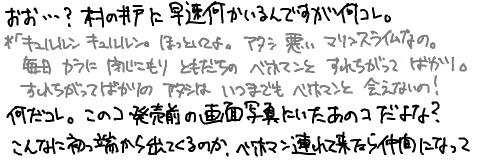 おお…？村の井戸に早速何かいるんですがい何コレ。
*「キュルルン キュルルン。ほっといてよ。アタシ 悪い マリンスライムなの。
毎日 カラに 閉じこもり ともだちの ベホマンと すれちがって ばかり。
すれちがってばかりの アタシは いつまでも ベホマンと 会えないの！
何だコレ。このコ発売前の画面写真にいたあのコだよな？
こんなに初っ端から出てくるのか、ベホマン連れて来たら仲間になって